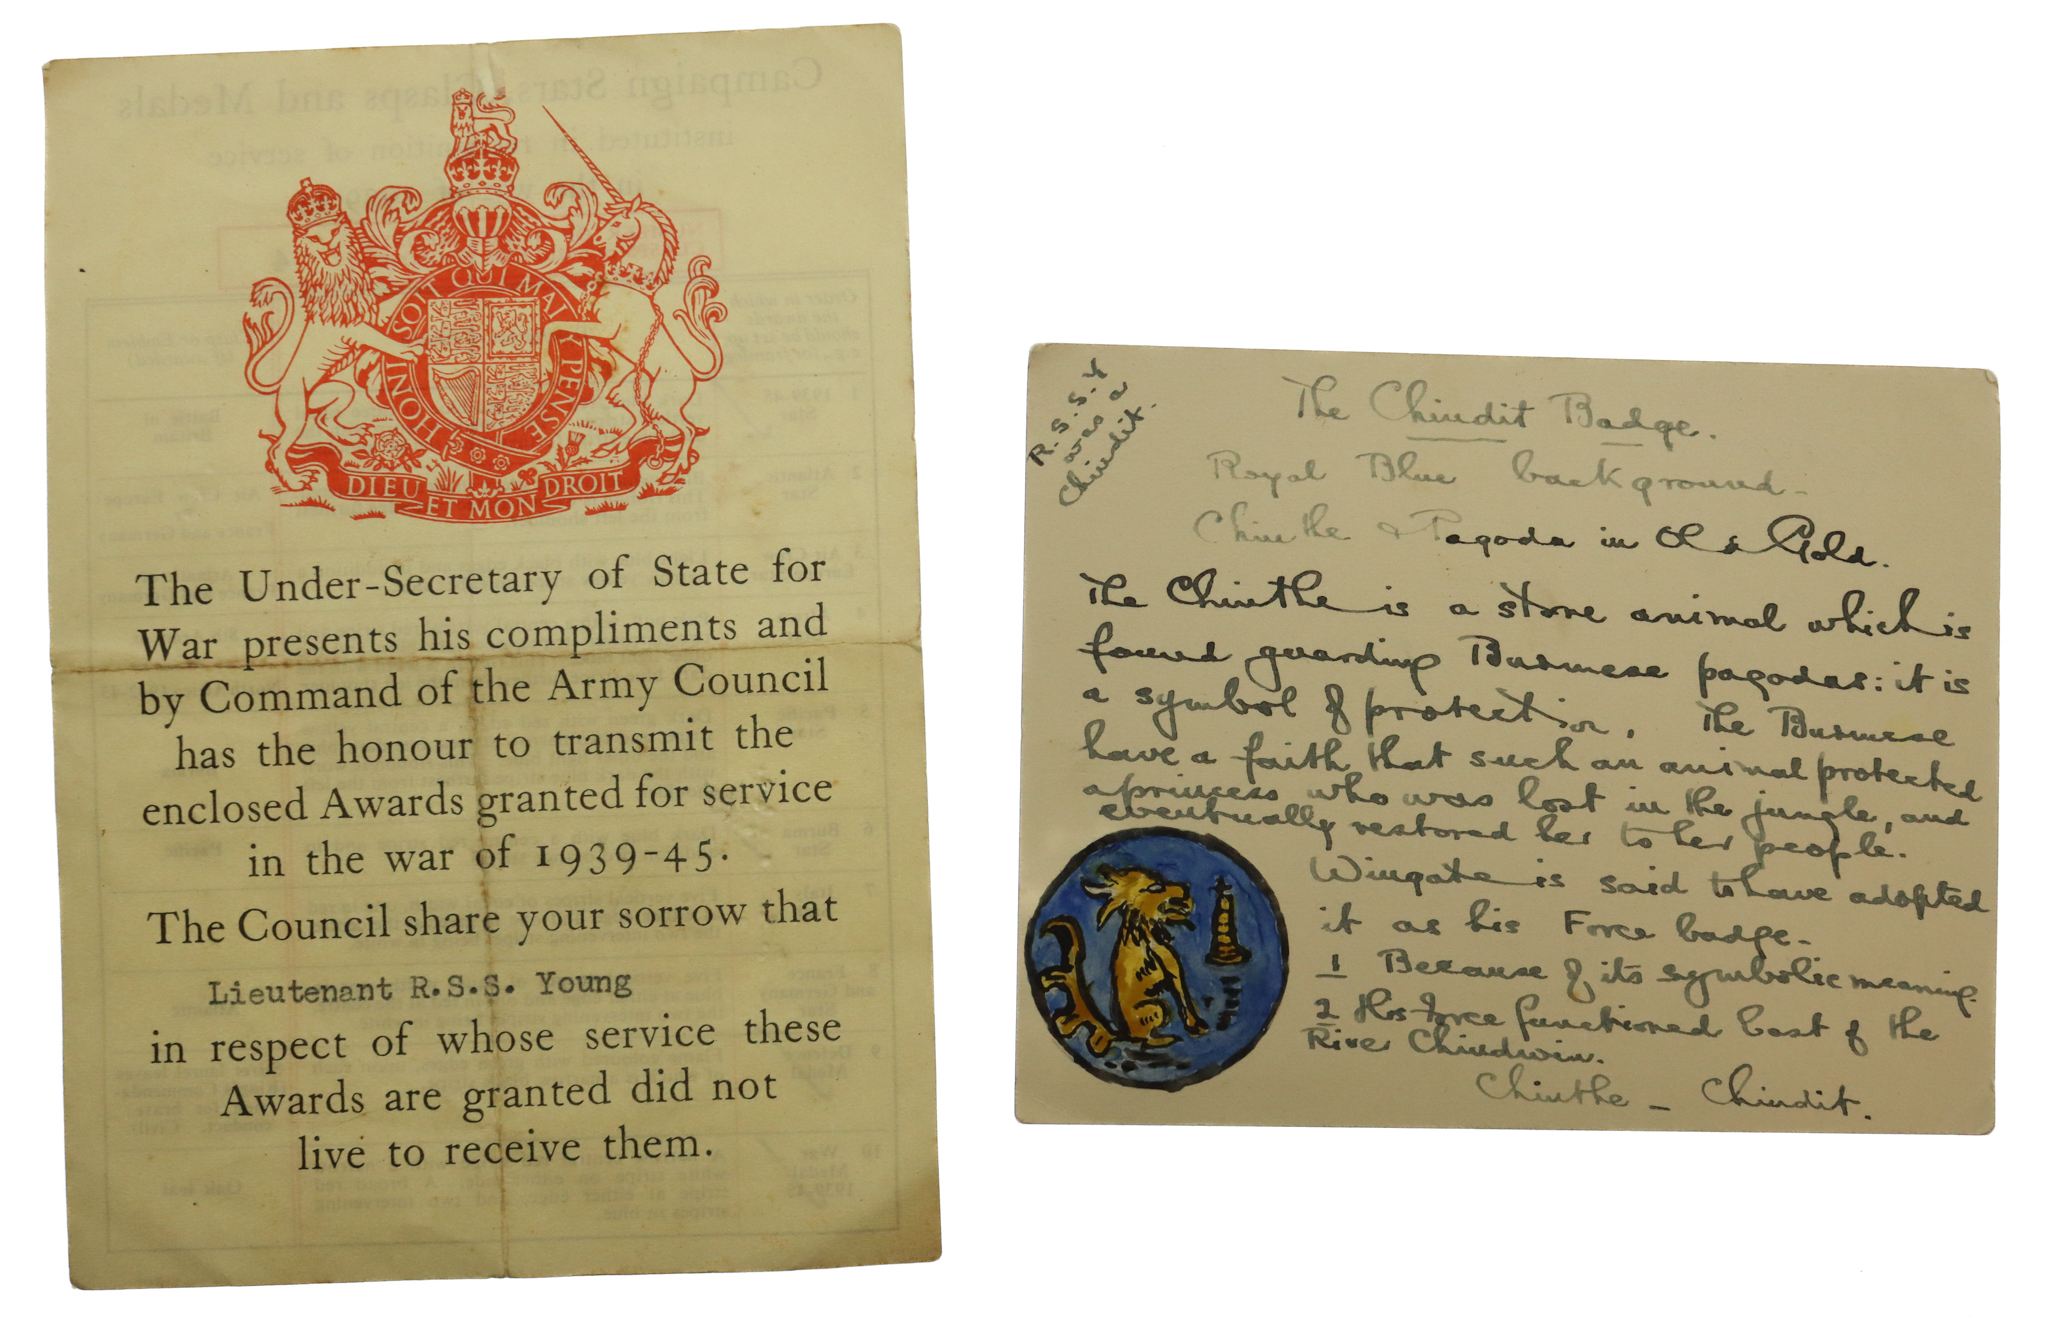 HONI SOIT QUI MAL Y PENSE
DIEU ET MON DROIT
The Under-Secretary of State for
War presents his compliments and
by Command of the Army Council
has the honour to transmit the
enclosed Awards granted for service
in the war of 1939-45.
The Council share your sorrow that
Lieutenant R.S.S. Young
in respect of whose service these
Awards are granted did not
live to receive them.
R.S.S.Y
was a
Chindit.
The Chindit Badge.
Royal Blue background -
Chinthe & Pagoda in Old Gold.
The Chinthe is a stone animal which is
found guarding Burmese pagodas: it is
a symbol of protection. The Burmese
have a faith that such an animal protected
a princess who was lost in the jungle, and
eventually restored her to her people.
Wingate is said to have adopted
it as his Force badge -
1 Because of its symbolic meaning.
2 His force functioned East of the
River Chindwin.
Chinthe - Chindit.